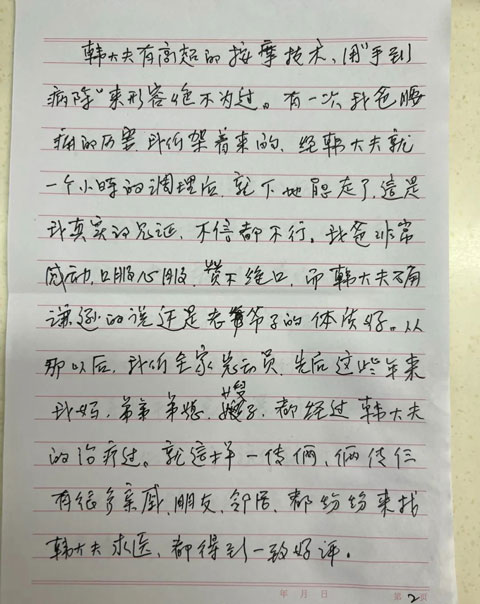 韩大夫有高超的按摩技术、用"手到
病除"来形容绝不为过。有一次我爸腰
痛的厉害我们架着来的、经韩大夫就
一个小时的调理后、就下地能走了、這是
我真实的见证、不信都不行。我爸非常
感动、口服心服、赞不绝口、而韩大夫
谦逊的说还是老爷子的体质好。从
那以后、我们全家总动员、先后这些年来
我妈、弟弟、弟媳、嫂子、都经过韩大夫
的治疗过。就這样一传俩、俩传仨
有很多亲戚、朋友、邻居、都纷纷来找
韩大夫求医、都得到一致好评。
年 月 日 第 2 页